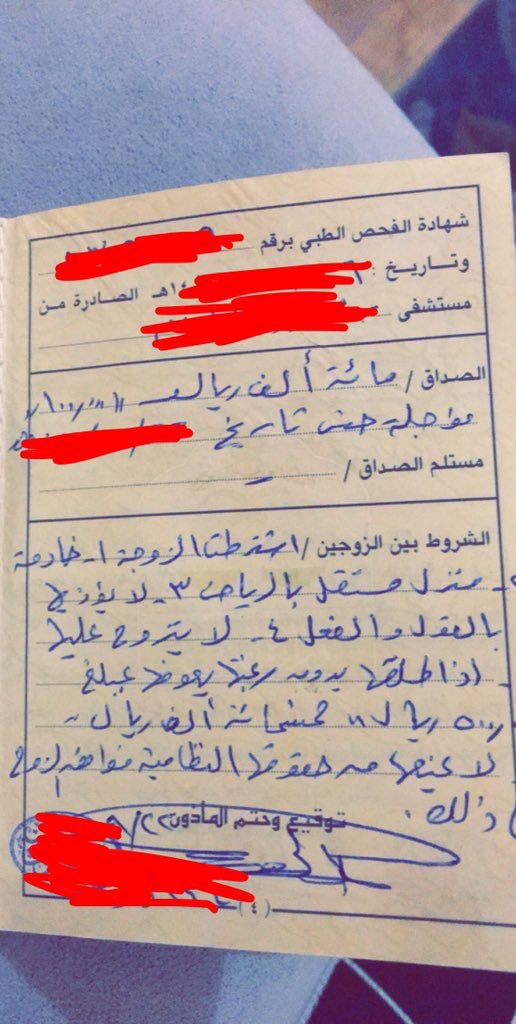 شهادة الفحص الطبي برقم
وتاريخ : ١٤ هـ الصادرة من
مستشفى
الصداق / مائة ألف ريال
مؤجلة حتى تاريخ
مستلم الصداق /
الشروط بين الزوجين / اشترطت الزوجة ١- خادمة
منزل مستقل بالرياض ٣- لا يؤذيها
بالقول والفعل ٤- لا يتزوج عليها
اذا طلقها بدون رغبتها يعوضها بمبلغ
ريال خمسمائة ألف ريال
لا يمنعها من حقوقها النظامية فوافق الزوج
ذلك.
توقيع وختم المأذون
(٤)